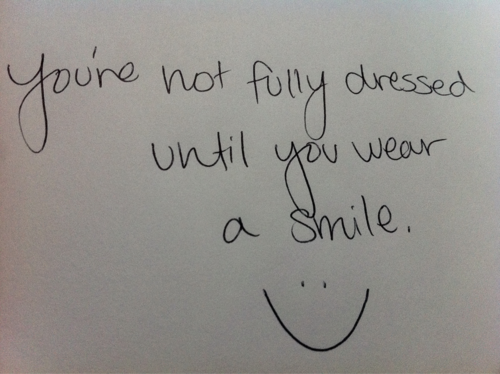 You're not fully dressed
until you wear
a smile.